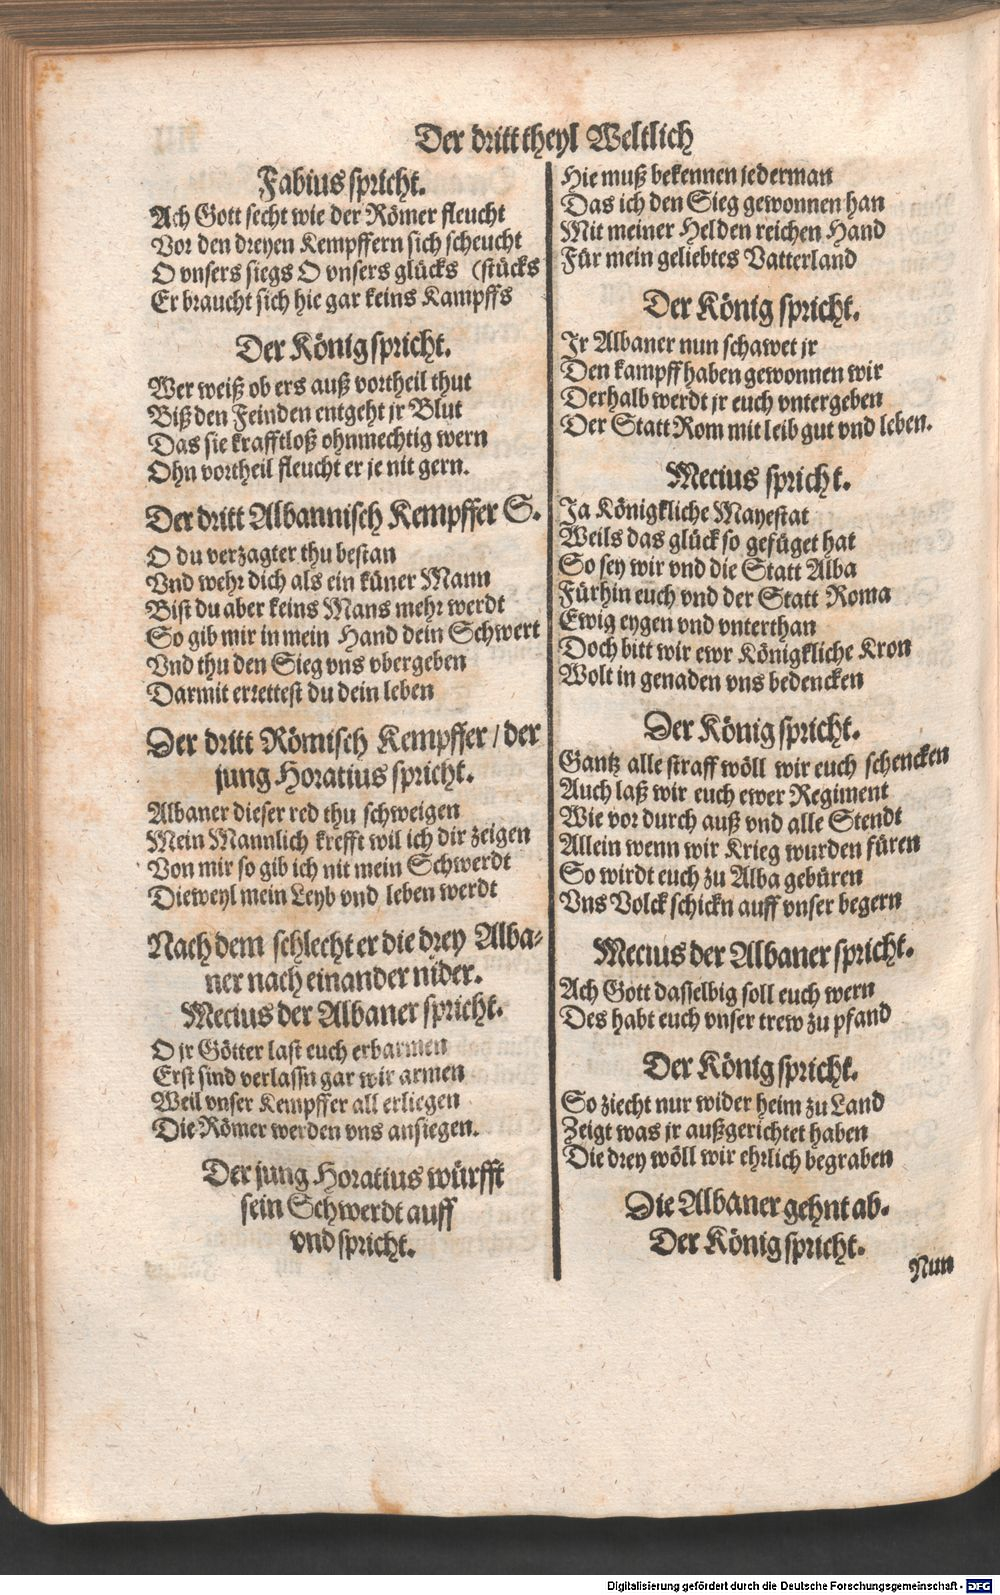 Der dritt theyl Weltlich
Fabius spricht.
Ach Gott secht wie der Römer fleucht
Vor den dreyen Kempffern sich scheucht
O vnsers siegs O vnsers glücks (stücks
Er braucht sich hie gar keins Kampffs
Der König spricht.
Wer weiß ob ers auß vortheil thut
Biß den Feinden entgeht jr Blut
Das sie krafftloß ohnmechtig wern
Ohn vortheil fleucht er je nit gern.
Der dritt Albannisch Kempffer S.
O du verzagter thu bestan
Vnd wehr dich als ein küner Mann
Bist du aber keins Mans mehr werdt
So gib mir in mein Hand dein Schwert
Vnd thu den Sieg vns vbergeben
Darmit errettest du dein leben
Der dritt Römisch Kempffer / der
jung Horatius spricht.
Albaner dieser red thu schweigen
Mein Mannlich krefft wil ich dir zeigen
Von mir so gib ich nit mein Schwerdt
Dieweyl mein Leyb vnd leben werdt
Nach dem schlecht er die drey Alba-
ner nach einander nider.
Mecius der Albaner spricht.
O jr Götter last euch erbarmen
Erst sind verlassn gar wir armen
Weil vnser Kempffer all erliegen
Die Römer werden vns ansiegen.
Der jung Horatius würfft
sein Schwerdt auff
vnd spricht.
Hie muß bekennen jederman
Das ich den Sieg gewonnen han
Mit meiner Helden reichen Hand
Für mein geliebtes Vatterland
Der König spricht.
Jr Albaner nun schawet jr
Den kampff haben gewonnen wir
Derhalb werdt jr euch vntergeben
Der Statt Rom mit leib gut vnd leben.
Mecius spricht.
Ja Königkliche Mayestat
Weils das glück so gefüget hat
So sey wir vnd die Statt Alba
Fürhin euch vnd der Statt Roma
Ewig eygen vnd vnterthan
Doch bitt wir ewr Königkliche Kron
Wolt in genaden vns bedencken
Der König spricht.
Gantz alle straff wöll wir euch schencken
Auch laß wir euch ewer Regiment
Wie vor durch auß vnd alle Stendt
Allein wenn wir Krieg wurden füren
So wirdt euch zu Alba gebüren
Vns Volck schickn auff vnser begern
Mecius der Albaner spricht.
Ach Gott dasselbig soll euch wern
Des habt euch vnser trew zu pfand
Der König spricht.
So ziecht nur wider heim zu Land
Zeigt was jr außgerichtet haben
Die drey wöll wir ehrlich begraben
Die Albaner gehnt ab.
Der König spricht.
Nun
Digitalisierung gefördert durch die Deutsche Forschungsgemeinschaft - DFG